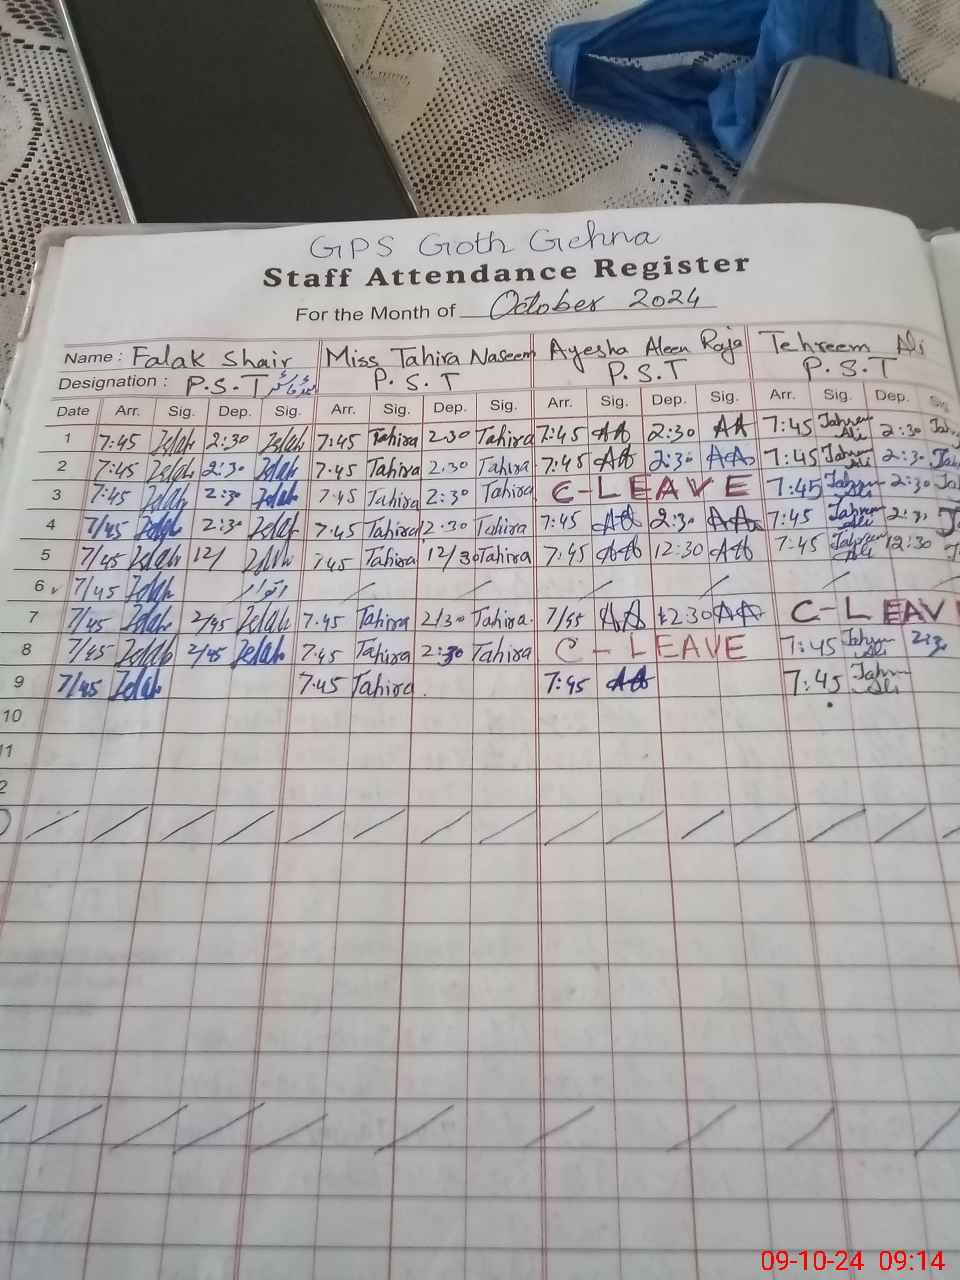 GPS Goth Gehna
Staff Attendance Register
For the Month of October 2024
Name : Falak Shair Miss Tahira Naseem Ayesha Aleen Raja Tehreem Ali
Designation : P.S.T P.S.T P.S.T P.S.T
Date Arr. Sig. Dep. Sig. Arr. Sig. Dep. Sig. Arr. Sig. Dep. Sig. Arr. Sig. Dep. Sig
1 7:45 2:30 7:45 Tahira 2.30 Tahira 7:45 AA 2:30 AA 7:45 2:30
2 7:45 2:30 7.45 Tahira 2.30 Tahira 7:45 AA 2:30 AA 7:45 2:30
3 7:45 2:30 7.45 Tahira 2:30 Tahira C-LEAVE 7:45 2:30
4 7/45 2:30 7.45 Tahira 2.30 Tahira 7:45 AA 2:30 AA 7:45
5 7/45 12/ 7.45 Tahira 12/30 Tahira 7:45 AA 12:30 AA 7:45 12:30
6 7/45 اتوار
7 7/45 2/45 7.45 Tahira 2/30 Tahira. 7/45 AA 2:30 AA C-LEAV
8 7/45 2/45 7.45 Tahira 2:30 Tahira C-LEAVE 7:45 2:30
9 7/45 7.45 Tahira. 7:45 AA 7:45
10
11
2
09-10-24 09:14